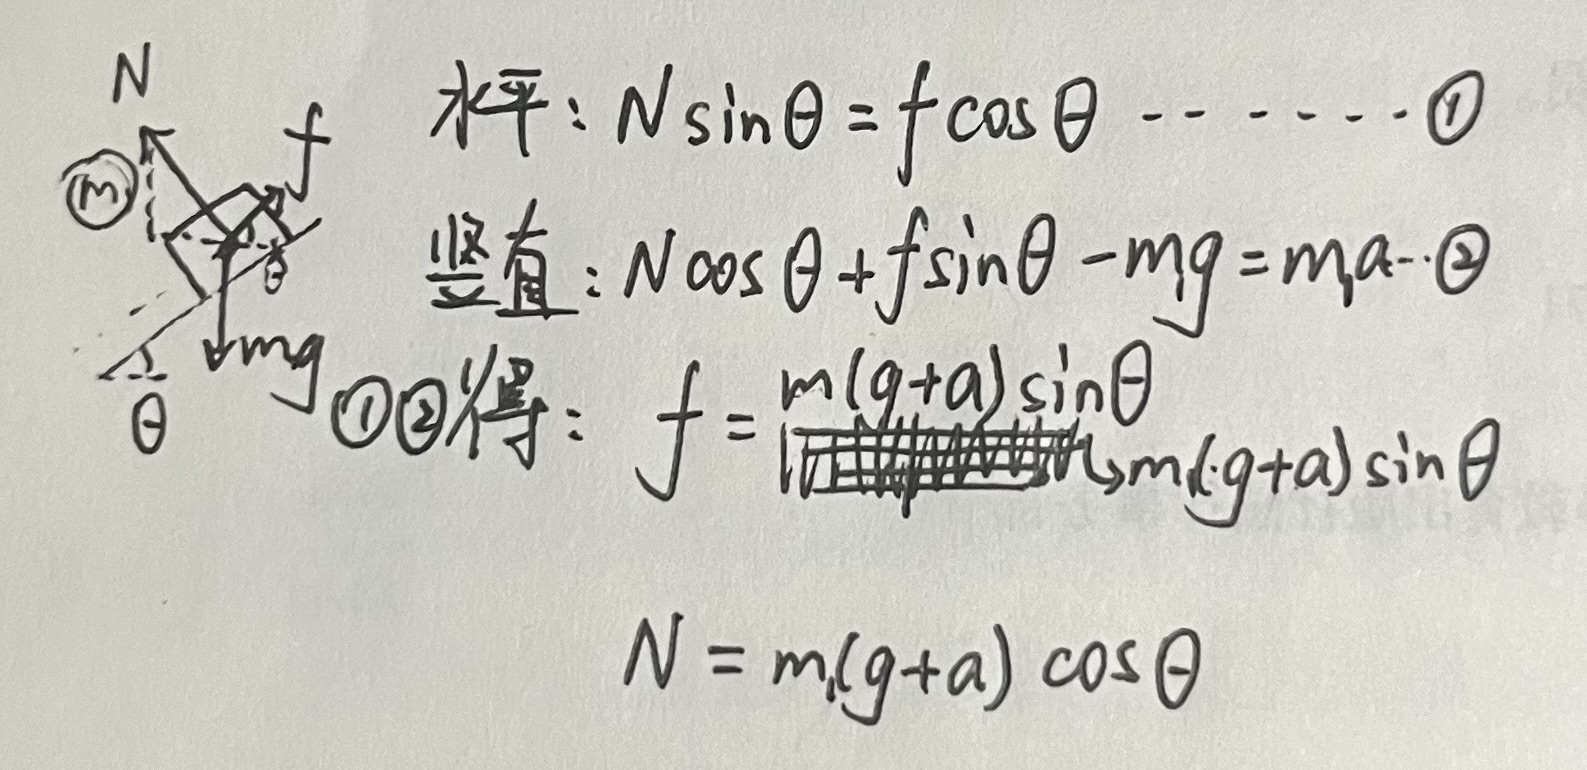 N
f
m
θ
mg
θ
水平: N sinθ = f cosθ ------- ①
竖直: N cosθ + f sinθ - mg = ma -- ②
①②得: f = m(g+a) sinθ
m(g+a) sinθ
N = m(g+a) cosθ